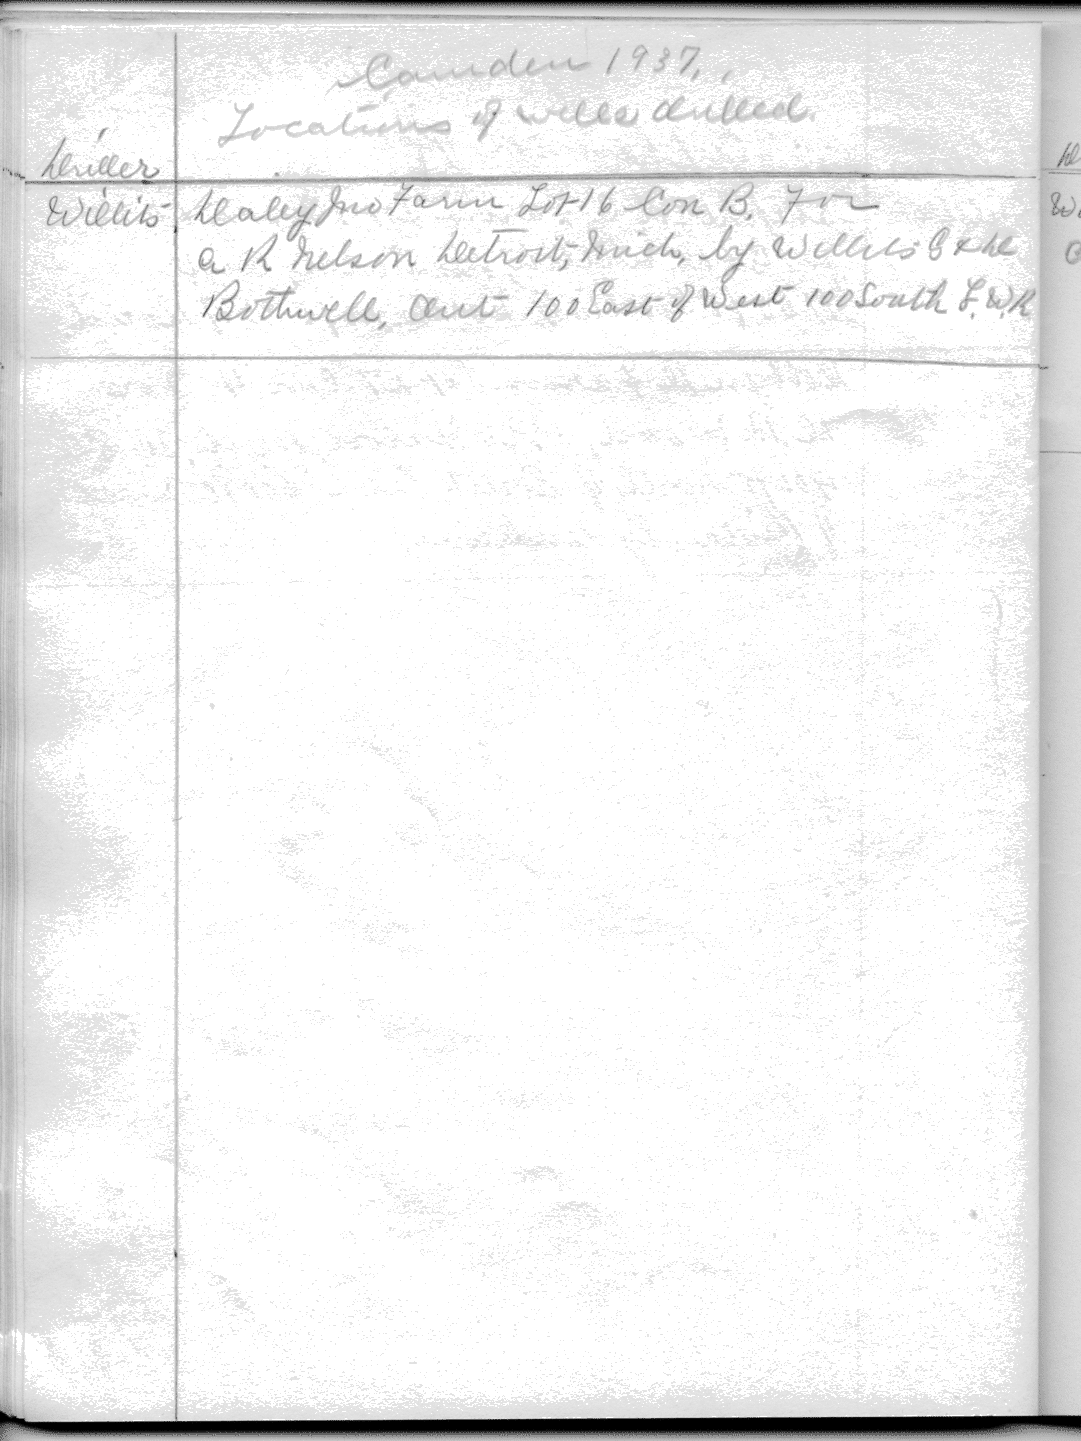 Camden 1937,
Locations of wells drilled.
Driller
Willits Daley Jno Farm Lot 16 Con B. For
A R Nelson Detroit, Mich, by Willits C & D
Bothwell, Ont 100 East of West 100 South